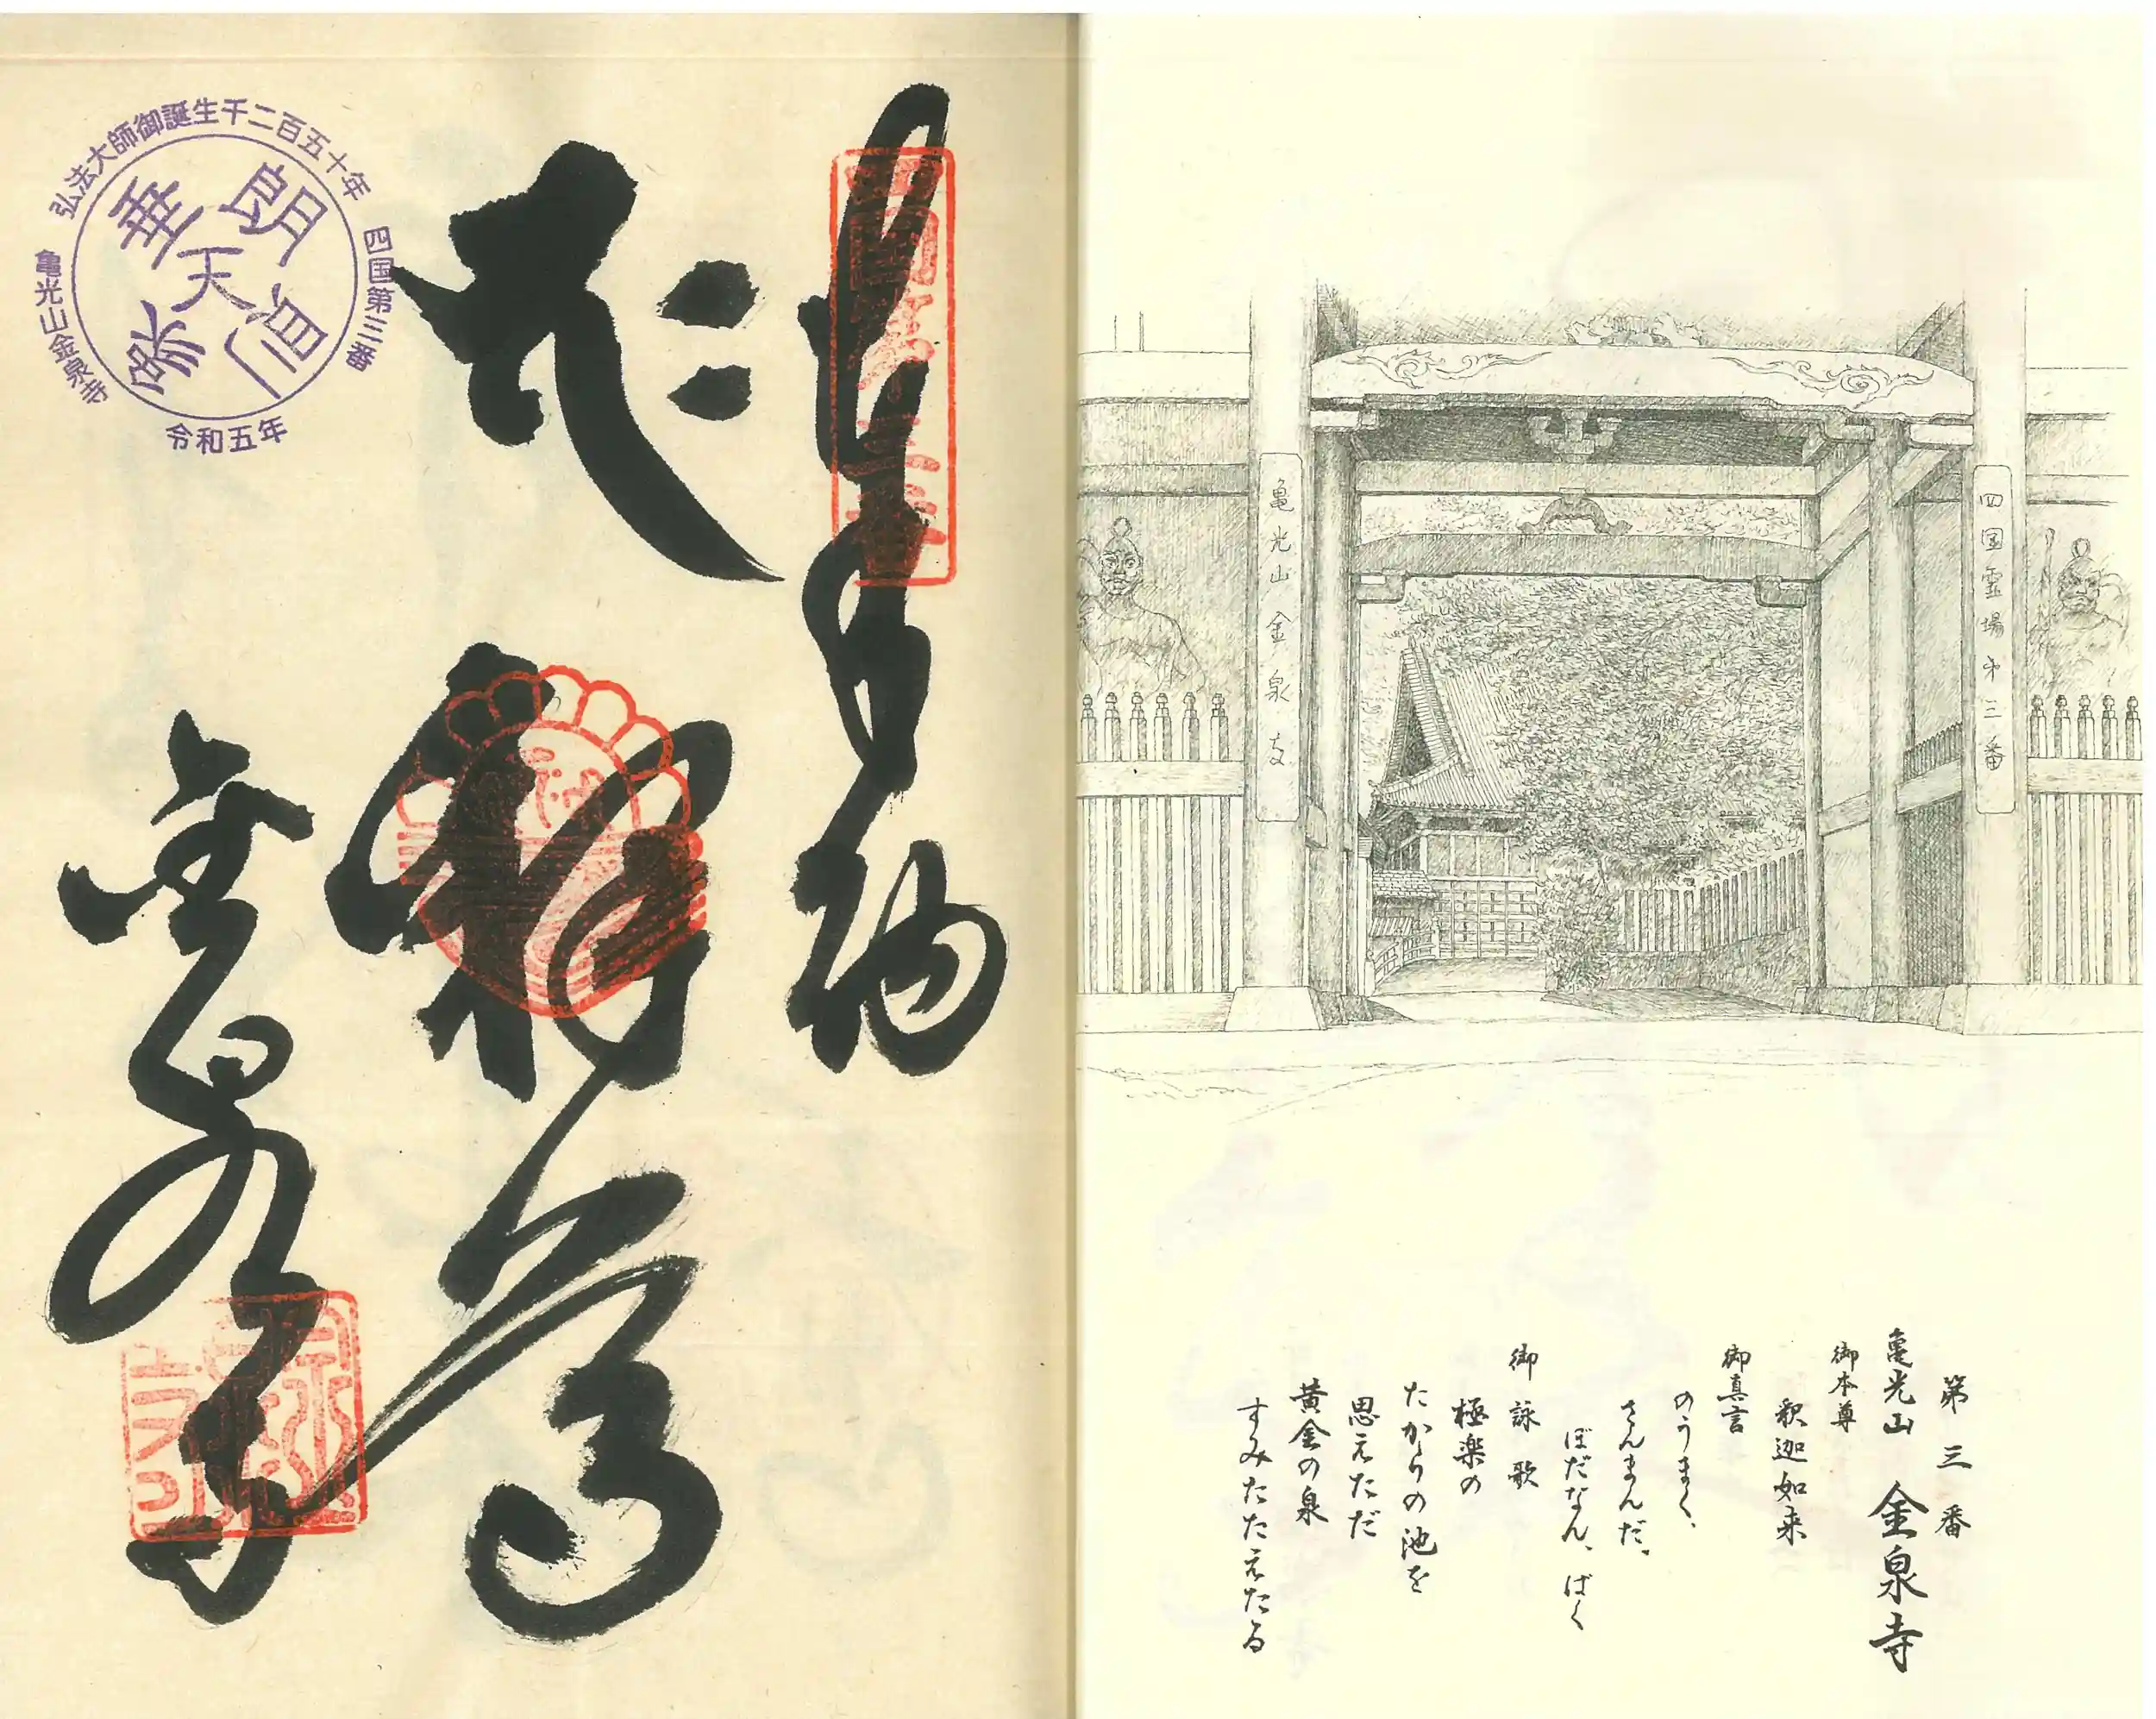 第三番
亀光山 金泉寺
御本尊
釈迦如来
御真言
のうまく、
さんまんだ、
ぼだなん、ばく
御詠歌
極楽の
たからの池を
思えただ
黄金の泉
すみたたえたる
四国霊場第三番
亀光山金泉寺
奉納
釈迦
金泉寺
弘法大師御誕生千二百五十年
四国第三番
亀光山金泉寺
令和五年